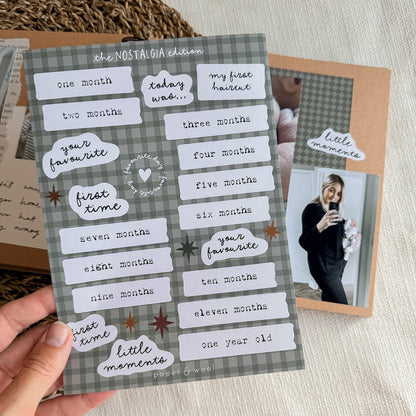 the NOSTALGIA edition
one month
today
was...
my first
haircut
two months
three months
your
favourite
four months
five months
first
time
six months
seven months
your
favourite
eight months
ten months
nine months
eleven months
first
time
little
moments
one year old
paper & wool
little
moments